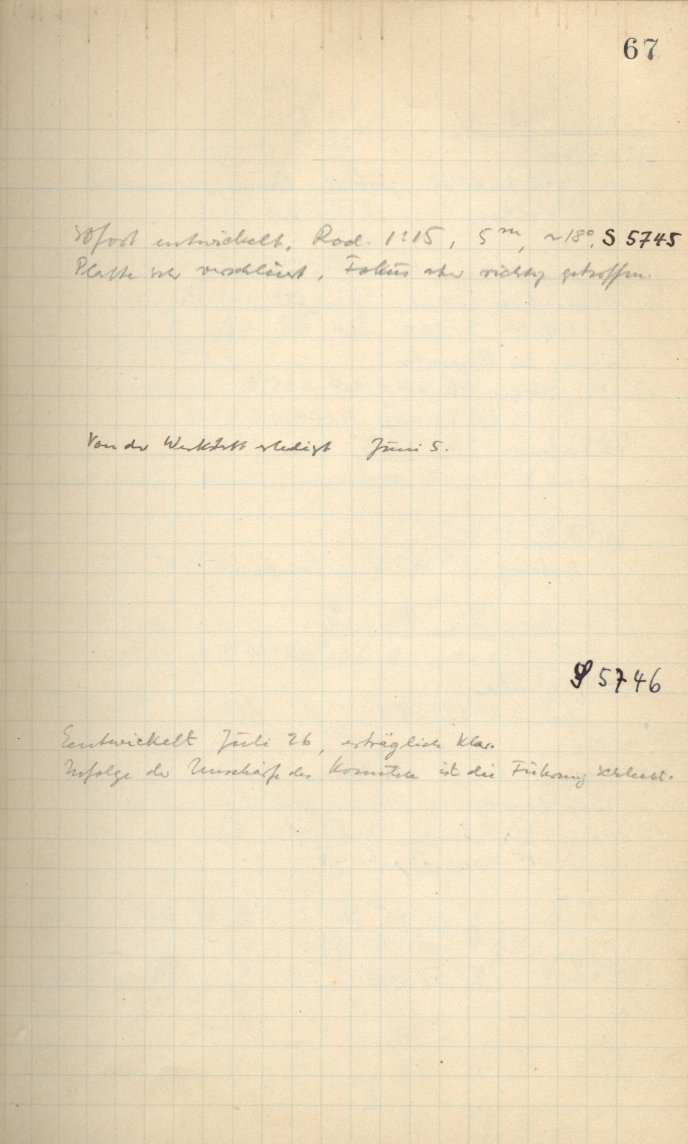 67
Sofort entwickelt, Rod. 1:15, 5ᵐ, ~18°. S 5745
Platte sehr verschleiert, Fokus aber richtig getroffen.
Von der Werkstatt erledigt Juni 5.
S 5746
Eentwickelt Juli 26, erträglich klar.
Infolge der Unschärfe des Kometen ist die Führung schlecht.